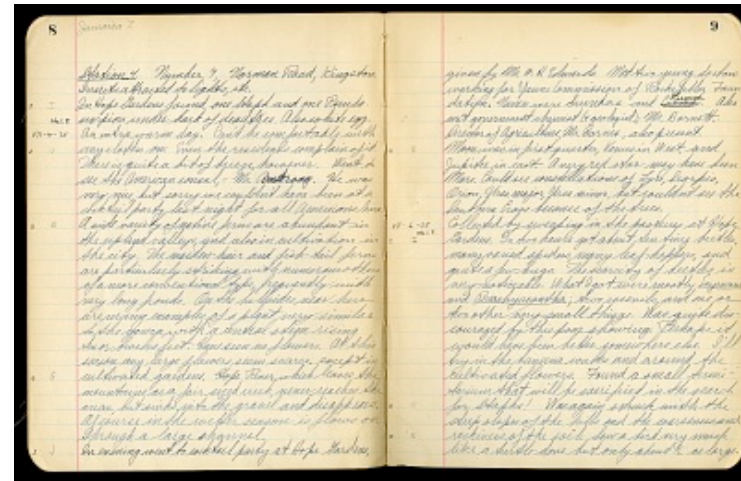 8
Jamaica 7
Station 4. Number 4, Norman Road, Kingston.
Insects attracted to lights, etc.
In Hope Gardens found one Staph and one Pseudo-
scorpion under bark of dead tree. Also
An extra warm day. Can't be comfortable with
any clothes on. Even the residents complain of it.
There is quite a bit of breeze, however. Went to
see the American consul, Mr. Armstrong. He was
very nice, but sorry we couldn't have been at a
party last night for all Americans here.
A wide variety of native ferns are abundant in
the upland valleys, and also in cultivation in
the city. The maiden-hair and fish tail ferns
are particularly striking with numerous others
of a more conventional type, frequently with
very long fronds. On the hillsides near here
are many examples of a plant very similar
to the yucca, with a central stem rising
ten or twelve feet. Have seen no flowers. At this
season any large flowers seem scarce, except in
cultivated gardens. Hope River, which leaves the
mountains as a fair sized creek, never reaches the
ocean, but sinks into the gravel and disappears.
Of course in the wetter season it flows on
through a large channel.
In evening went to cocktail party at Hope Gardens,
9
given by Mr. W. H. Edwards. Met two young doctors
working for Yaws Commission of Rockefeller Foun-
dation.
government chemist & geologist, Mr. Burnett.
Director of Agriculture, Mr. Barnes, also present.
Moon was in first quarter, Venus in West and
Jupiter in east. A very red star may have been
Mars. Could see constellations of Lyra, Scorpio,
Orion, Ursa major, Ursa minor, but couldn't see the
Southern Cross because of the trees.
Collected by sweeping in the pastures at Hope
Gardens. In two hours got about ten tiny beetles,
many small spiders, many leaf-hoppers, and
quite a few bugs. The scarcity of beetles is
very noticeable. What I got were mostly
and two and one or
two other very small things. Was quite dis-
couraged by this poor showing. Perhaps it
would have been better somewhere else. I'll
try in the banana walks and around the
cultivated flowers. Found a small
that will be sacrificed in the search
for Staphs! Was again struck with the
steep slopes of the hills and the coarseness and
rockiness of the soil. Saw a bird very much
like a turtle dove but only about ½ as large.